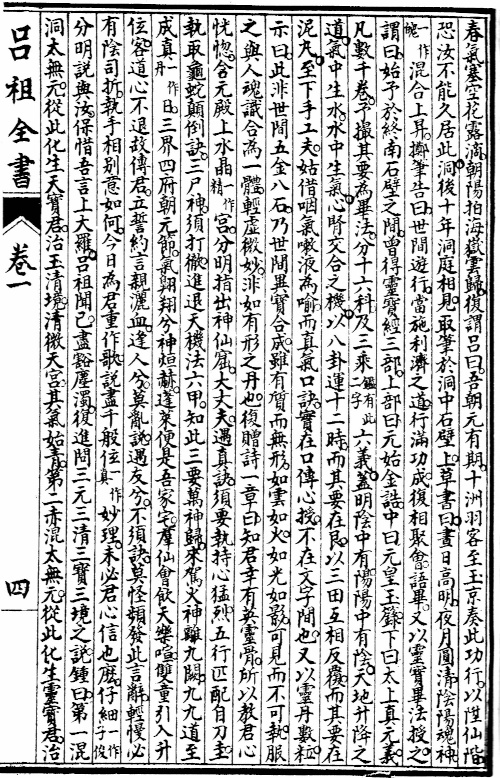 春氣塞空花露滴朝陽拍海嶽雲歸復謂呂曰吾朝元有期十洲羽客至玉京奏此功行以陞仙階
恐汝不能久居此洞後十年洞庭相見取筆於洞中石壁上草書曰晝日高明夜月圓清陰陽魂神
一作魄混合上昇擲筆告曰世間遊行當施利濟之道行滿功成復相聚會語畢又以靈寶畢法授之
謂曰始予於終南石壁之間曾得靈寶經三部上部曰元始金誥中曰元皇玉籙下曰太上真元義
凡數千卷予撮其要為畢法分十六科及三乘鑑有此二字六義蓋明陰中有陽陽中有陰天地升降之
道氣中生水水中生氣心腎交合之機以八卦運十二時而其要在艮以三田互相反覆而其要在
泥丸至下手工夫姑借咽氣嗽液為喻而真氣口訣實在口傳心授不在文字間也又以靈丹數粒
示曰此非世間五金八石乃世間異寶合成雖有質而無形如雲如火如光如影可見而不可執服
之與人魂識合為一體輕虛微妙非如有形之丹也復贈詩一章曰知君幸有英靈骨所以教君心
恍惚含元殿上水晶一作精宮分明指出神仙窟大丈夫遇真訣須要執持心猛烈五行匹配自刀圭
執取龜蛇顛倒訣三尸神須打徹進退天機法六甲知此三要萬神歸來駕火神離九闕九九道至
成真一作丹日三界四府朝元節氣翱翔兮神烜赫蓬萊便是吾家宅羣仙會飲天樂喧雙童引入升
位客道心不退故傳君立誓約言親灑血逢人兮莫亂說遇友兮不須訣莫怪頻發此言辭輕慢必
有陰司折執手相別意如何今日為君重作歌說盡千般位一作真妙理未必君心信也麽仔細一作子後
分明說與汝保惜吾言上大羅呂祖聞已盡豁塵濁復進問三元三清三寶三境之說鍾曰第一混
洞太無元從此化生天寶君治玉清境清微天宮其氣始青第二赤混太無元從此化生靈寶君治
呂祖全書
卷一
四